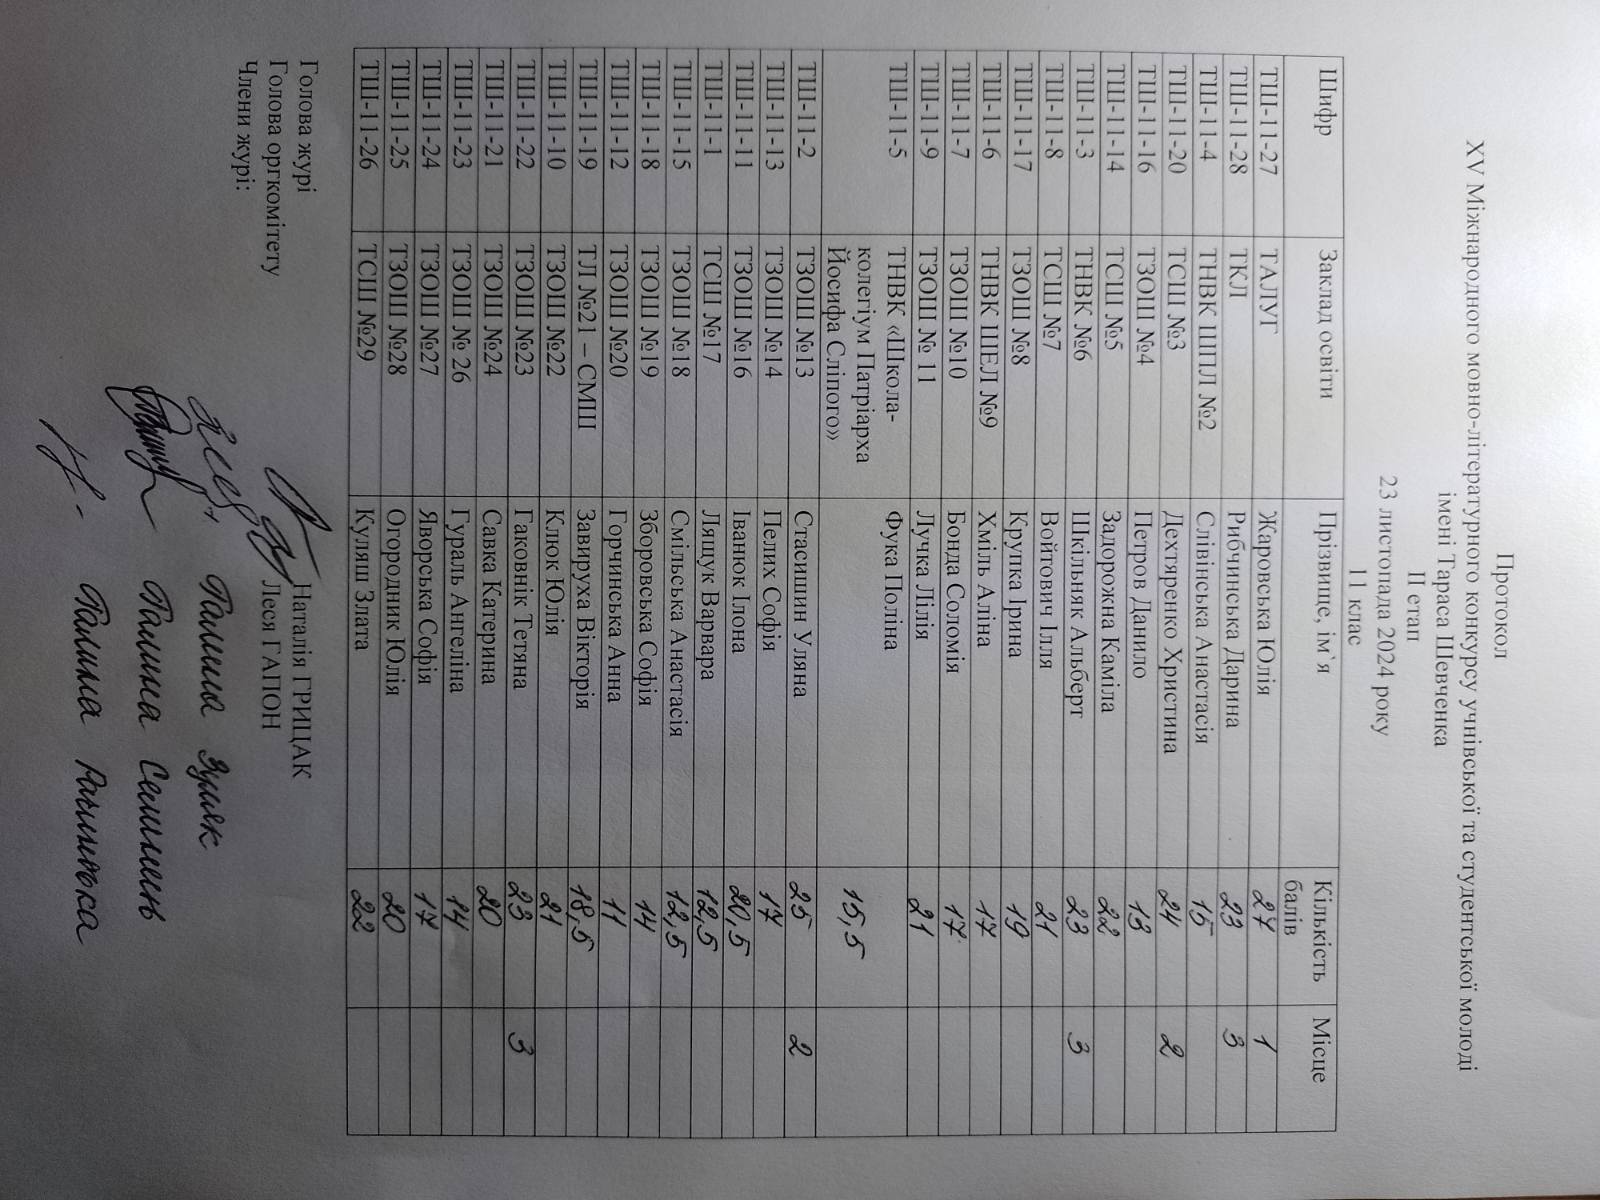 Протокол
XV Міжнародного мовно-літературного конкурсу учнівської та студентської молоді
імені Тараса Шевченка
ІІ етап
23 листопада 2024 року
11 клас
Шифр Заклад освіти Прізвище, ім`я Кількість балів Місце
ТШ-11-27 ТАЛУГ Жаровська Юлія 27 1
ТШ-11-28 ТКЛ Рибчинська Дарина 23 3
ТШ-11-4 ТНВК ШПЛ №2 Слівінська Анастасія 15
ТШ-11-20 ТСШ №3 Дехтяренко Христина 24 2
ТШ-11-16 ТЗОШ №4 Петров Данило 13
ТШ-11-14 ТСШ №5 Задорожна Каміла 22
ТШ-11-3 ТНВК №6 Шкільняк Альберт 23 3
ТШ-11-8 ТСШ №7 Войтович Ілля 21
ТШ-11-17 ТЗОШ №8 Крупка Ірина 19
ТШ-11-6 ТНВК ШЕЛ №9 Хміль Аліна 17
ТШ-11-7 ТЗОШ №10 Бонда Соломія 17
ТШ-11-9 ТЗОШ № 11 Лучка Лілія 21
ТШ-11-5 ТНВК «Школа-колегіум Патріарха Йосифа Сліпого» Фука Поліна 15,5
ТШ-11-2 ТЗОШ №13 Стасишин Уляна 25 2
ТШ-11-13 ТЗОШ №14 Пелих Софія 17
ТШ-11-11 ТЗОШ №16 Іванюк Ілона 20,5
ТШ-11-1 ТСШ №17 Лящук Варвара 12,5
ТШ-11-15 ТЗОШ №18 Смільська Анастасія 12,5
ТШ-11-18 ТЗОШ №19 Зборовська Софія 14
ТШ-11-12 ТЗОШ №20 Горчинська Анна 11
ТШ-11-19 ТЛ №21 – СМШ Завируха Вікторія 18,5
ТШ-11-10 ТЗОШ №22 Клюк Юлія 21
ТШ-11-22 ТЗОШ №23 Гаковнік Тетяна 23 3
ТШ-11-21 ТЗОШ №24 Савка Катерина 20
ТШ-11-23 ТЗОШ № 26 Гураль Ангеліна 14
ТШ-11-24 ТЗОШ №27 Яворська Софія 17
ТШ-11-25 ТЗОШ №28 Огородник Юлія 20
ТШ-11-26 ТСШ №29 Куляш Злата 22
Голова журі Наталія ГРИЦАК
Голова оргкомітету Леся ГАПОН
Члени журі:
Галина
Галина
Галина